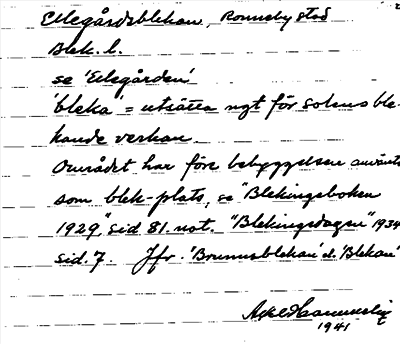 Ellegårdsblekan, Ronneby stad
Blek. l.
se 'Ellegården'
'bleka' = utsätta ngt för solens ble-
kande verkan.
Området har före bebyggelsen använts
som blek-plats, se "Blekingeboken
1929", sid 81. not. "Blekingedagen" 1934
sid. 7. Jfr. 'Brunnsblekan' o. 'Blekan'
Axel
1941